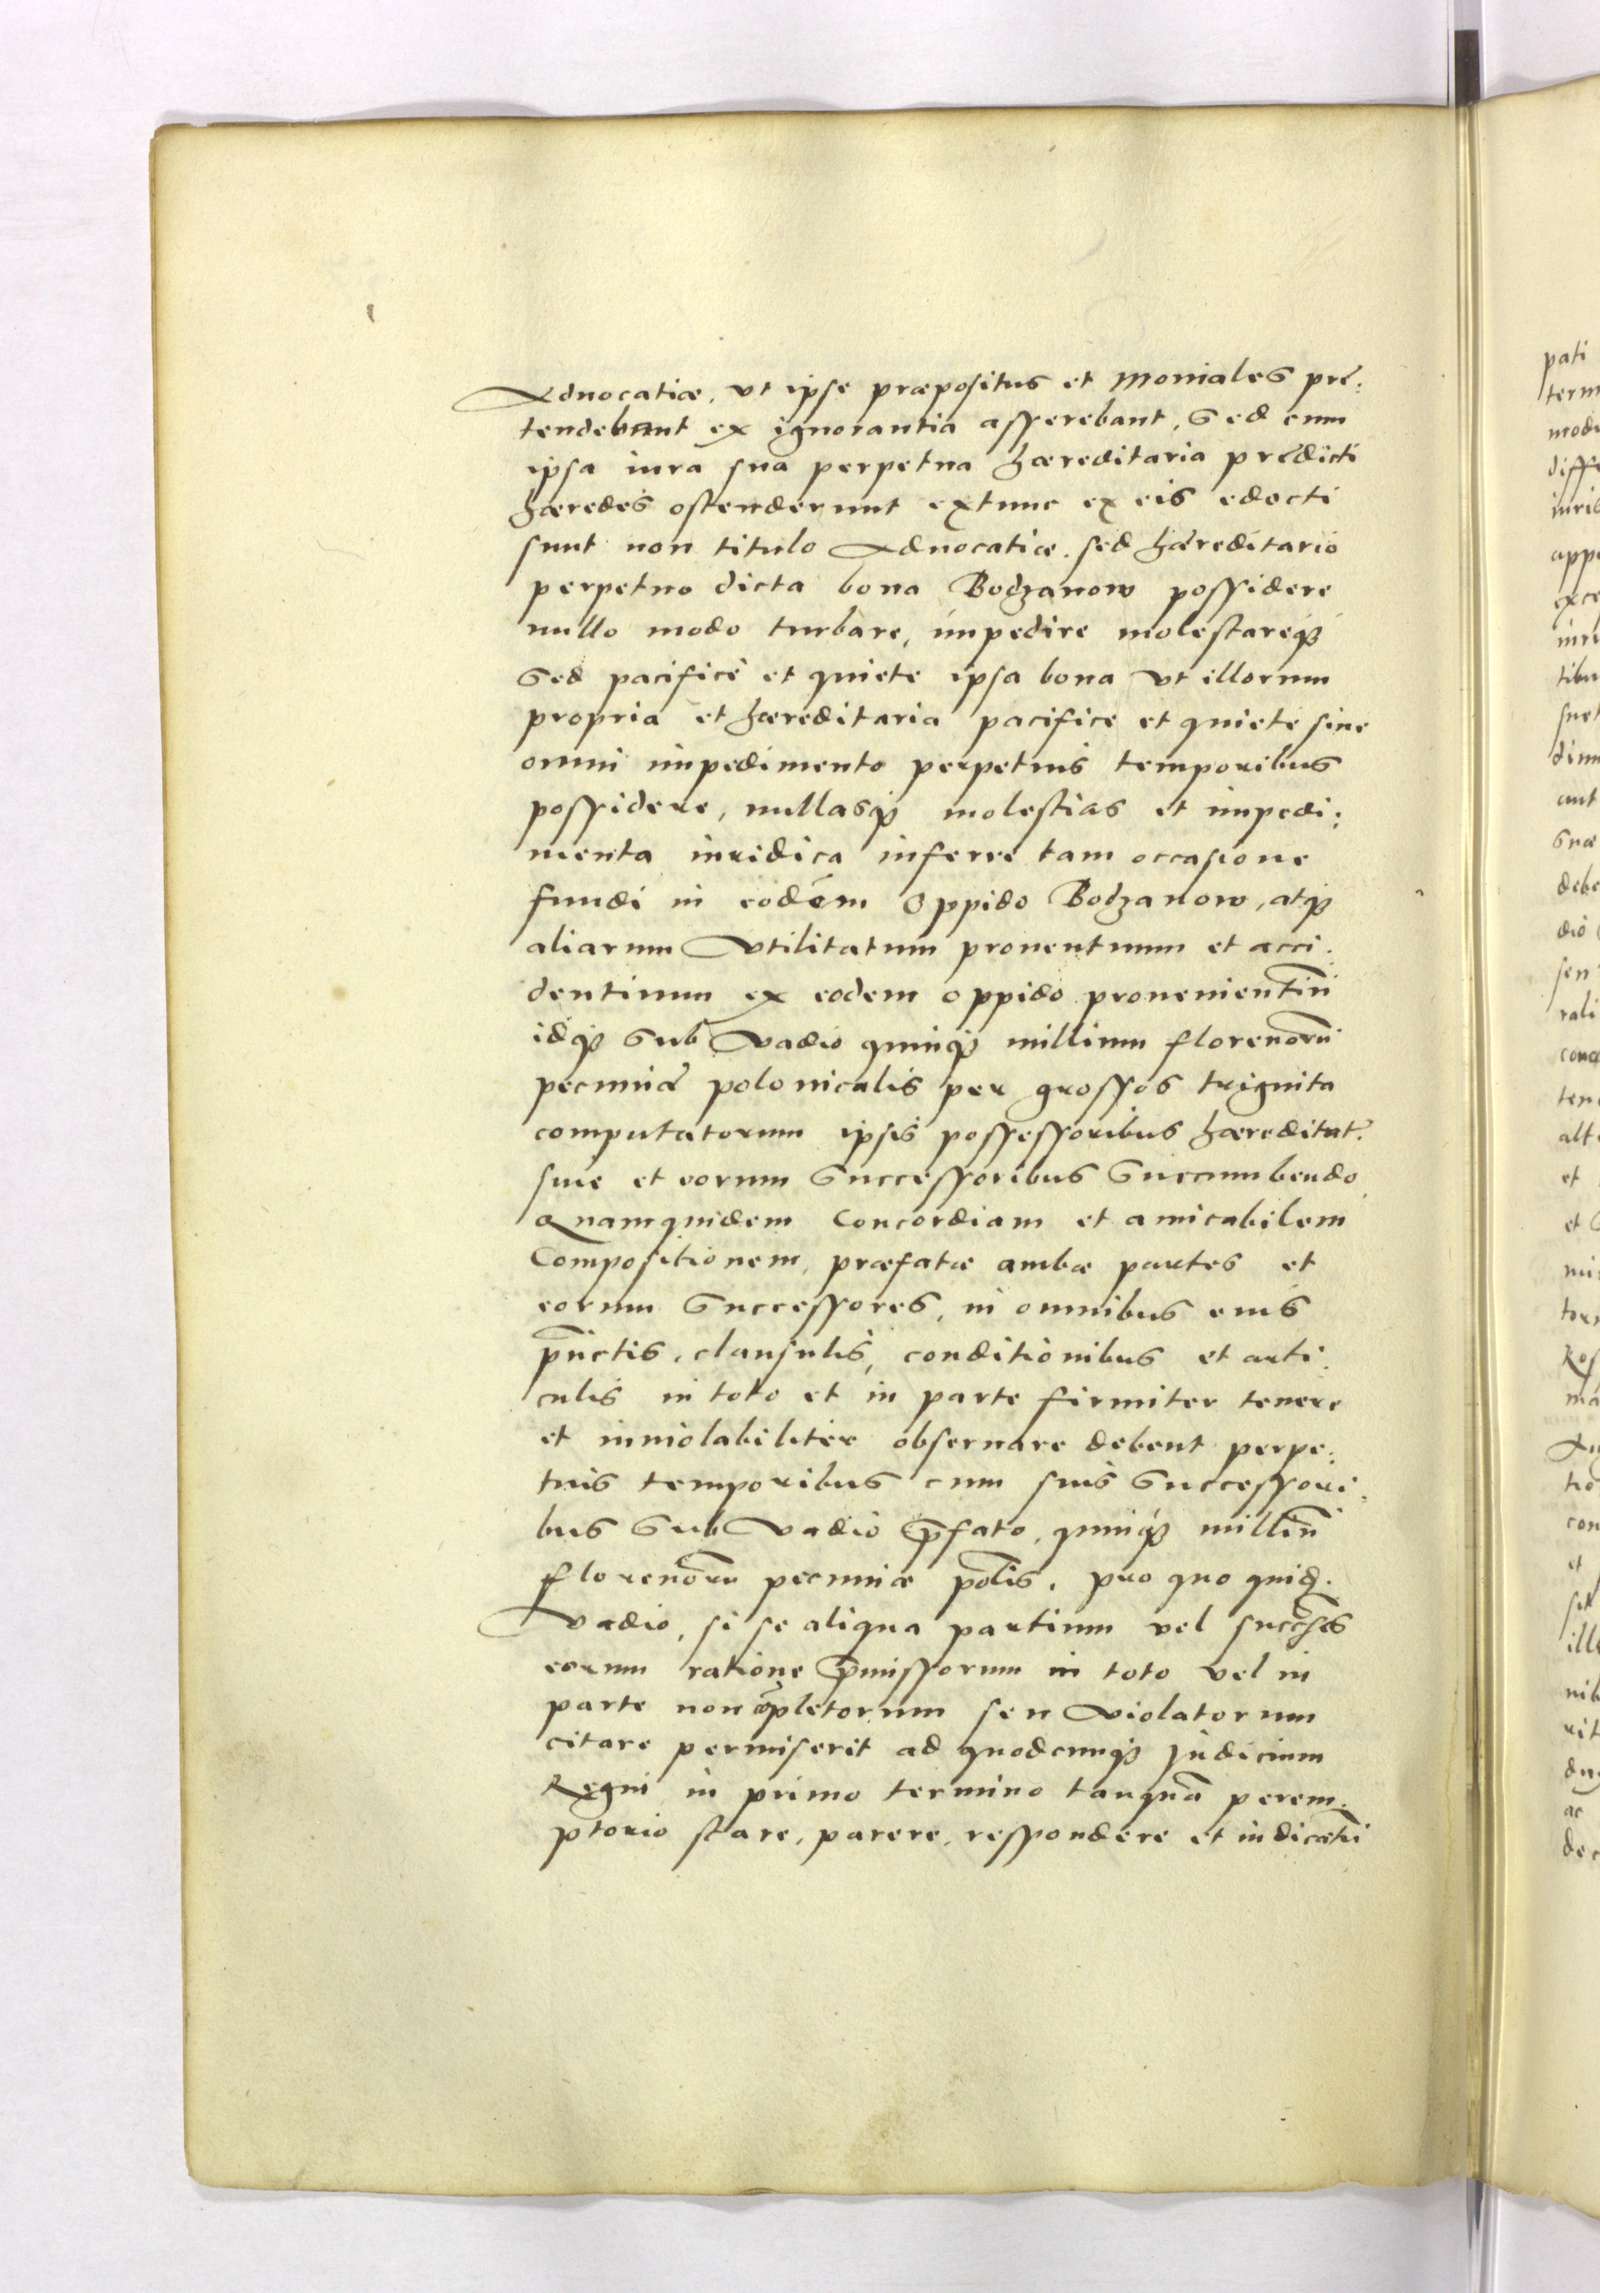 Aduocatiæ, vt ipse præpositus et Moniales prę:
tendebant ex ignorantia asserebant, Sed cum
ipsa iura sua perpetua hæreditaria prędicti
hæredes ostenderunt extunc ex eis edocti
sunt non titulo Aduocatiæ, sed hæreditario
perpetuo dicta bona Bodzanow possidere
nullo modo turbare, impedire molestareqꝫ
Sed pacificè et quiete ipsa bona vt illorum
propria et hæreditaria pacifice et quiete sine
omni impedimento perpetuis temporibus
possidere, nullasqꝫ molestias et impedi:
menta iuridica inferre tam occasione
fundi in eodem Oppido Bodzanow, atqꝫ
aliarum Vtilitatum prouentuum et acci:
dentium ex eodem oppido prouenientiũ
idqꝫ Sub Vadio quinqꝫ millium florenorũ
pecuniæ polonicalis per grossos triginta
computatorum ipsis possessoribus hæreditat:
siue et eorum Successoribus Succumbendo
Quamquidem Concordiam et amicabilem
Compositionem, præfatæ ambæ partes et
eorum Successores, in omnibus eius
pũctis, clausulis, conditionibus et arti:
culis in toto et in parte firmiter tenere
et inuiolabiliter obseruare debent perpe:
tuis temporibus cum suis Successori:
bus Sub Vadio p̃fato, quinqꝫ milliũ
florenorũ pecuniæ pol̃is, pro quo quid:
Vadio, si se aliqua partium vel succ̃ses
eorum ratione p̃missorum in toto vel in
parte non cõpletorum seu Violatorum
citare permiserit ad quodcunqꝫ Judicium
Regni in primo termino tanquã perem:
ptorio stare, parere, respondere et iudicatũ
pati